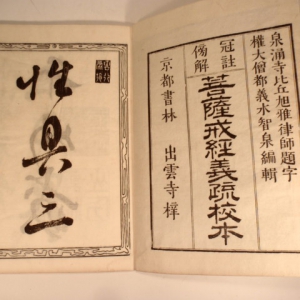 泉涌寺比丘旭雅律師題字
權大僧都義水智泉編輯
冠註
傍解
菩薩戒經義疏校本
京都書林 出雲寺梓
性具三